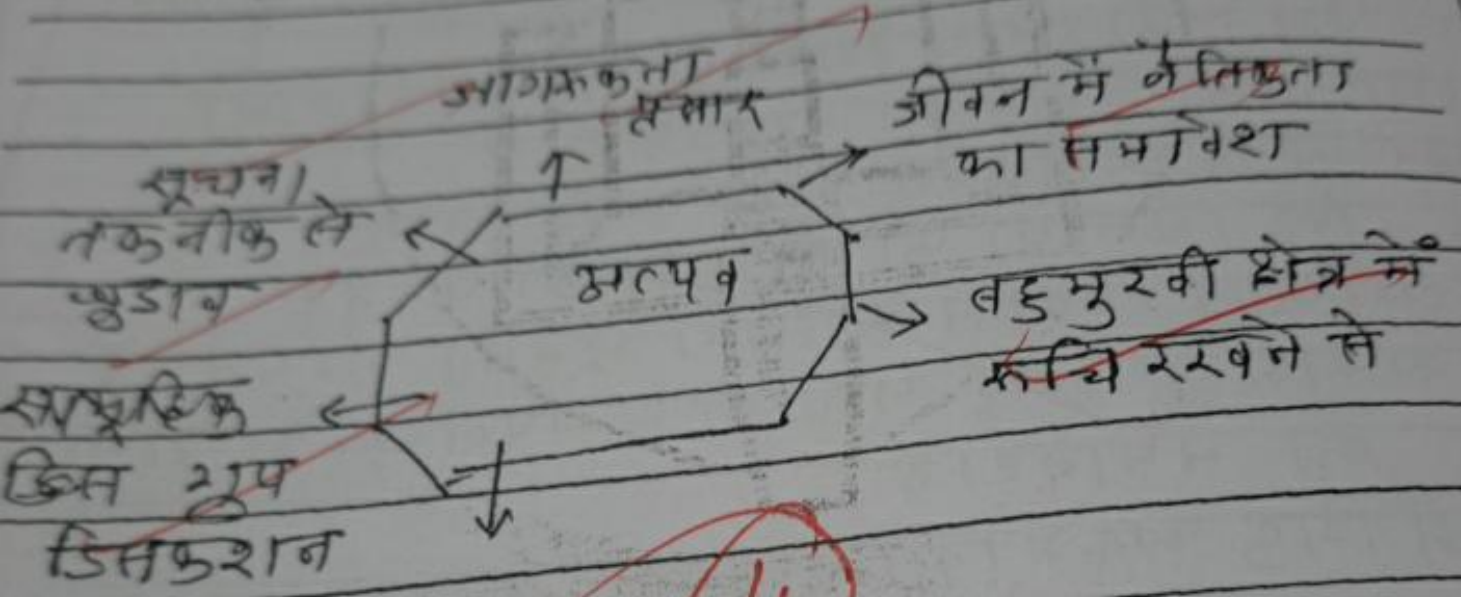 जागरूकता
प्रसार
जीवन में नैतिकता
का समावेश
सूचना
तकनीक से
जुडाव
बहुमुखी क्षेत्र में
रूचि रखने से
सामूहिक
ग्रुप
डिसकशन